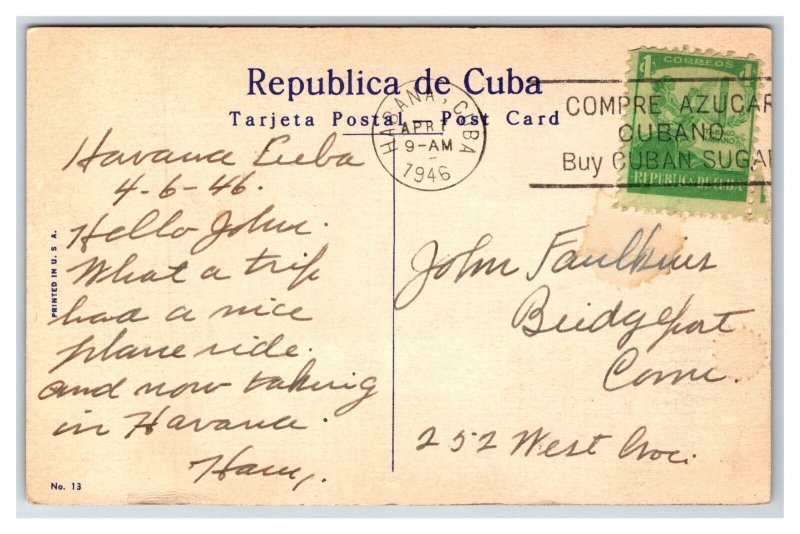 Republica de Cuba
Tarjeta Postal — Post Card
HABANA, CUBA
APR
9-AM
1946
COMPRE AZUCAR
CUBANO
Buy CUBAN SUGAR
CORREOS
1 1
REPUBLICA DE CUBA
Havana Cuba
4-6-46.
Hello John.
What a trip
had a nice
plane ride.
and now taking
in Havana.
John Faulkner
Bridgeport
Conn.
252 West
PRINTED IN U. S. A.
No. 13